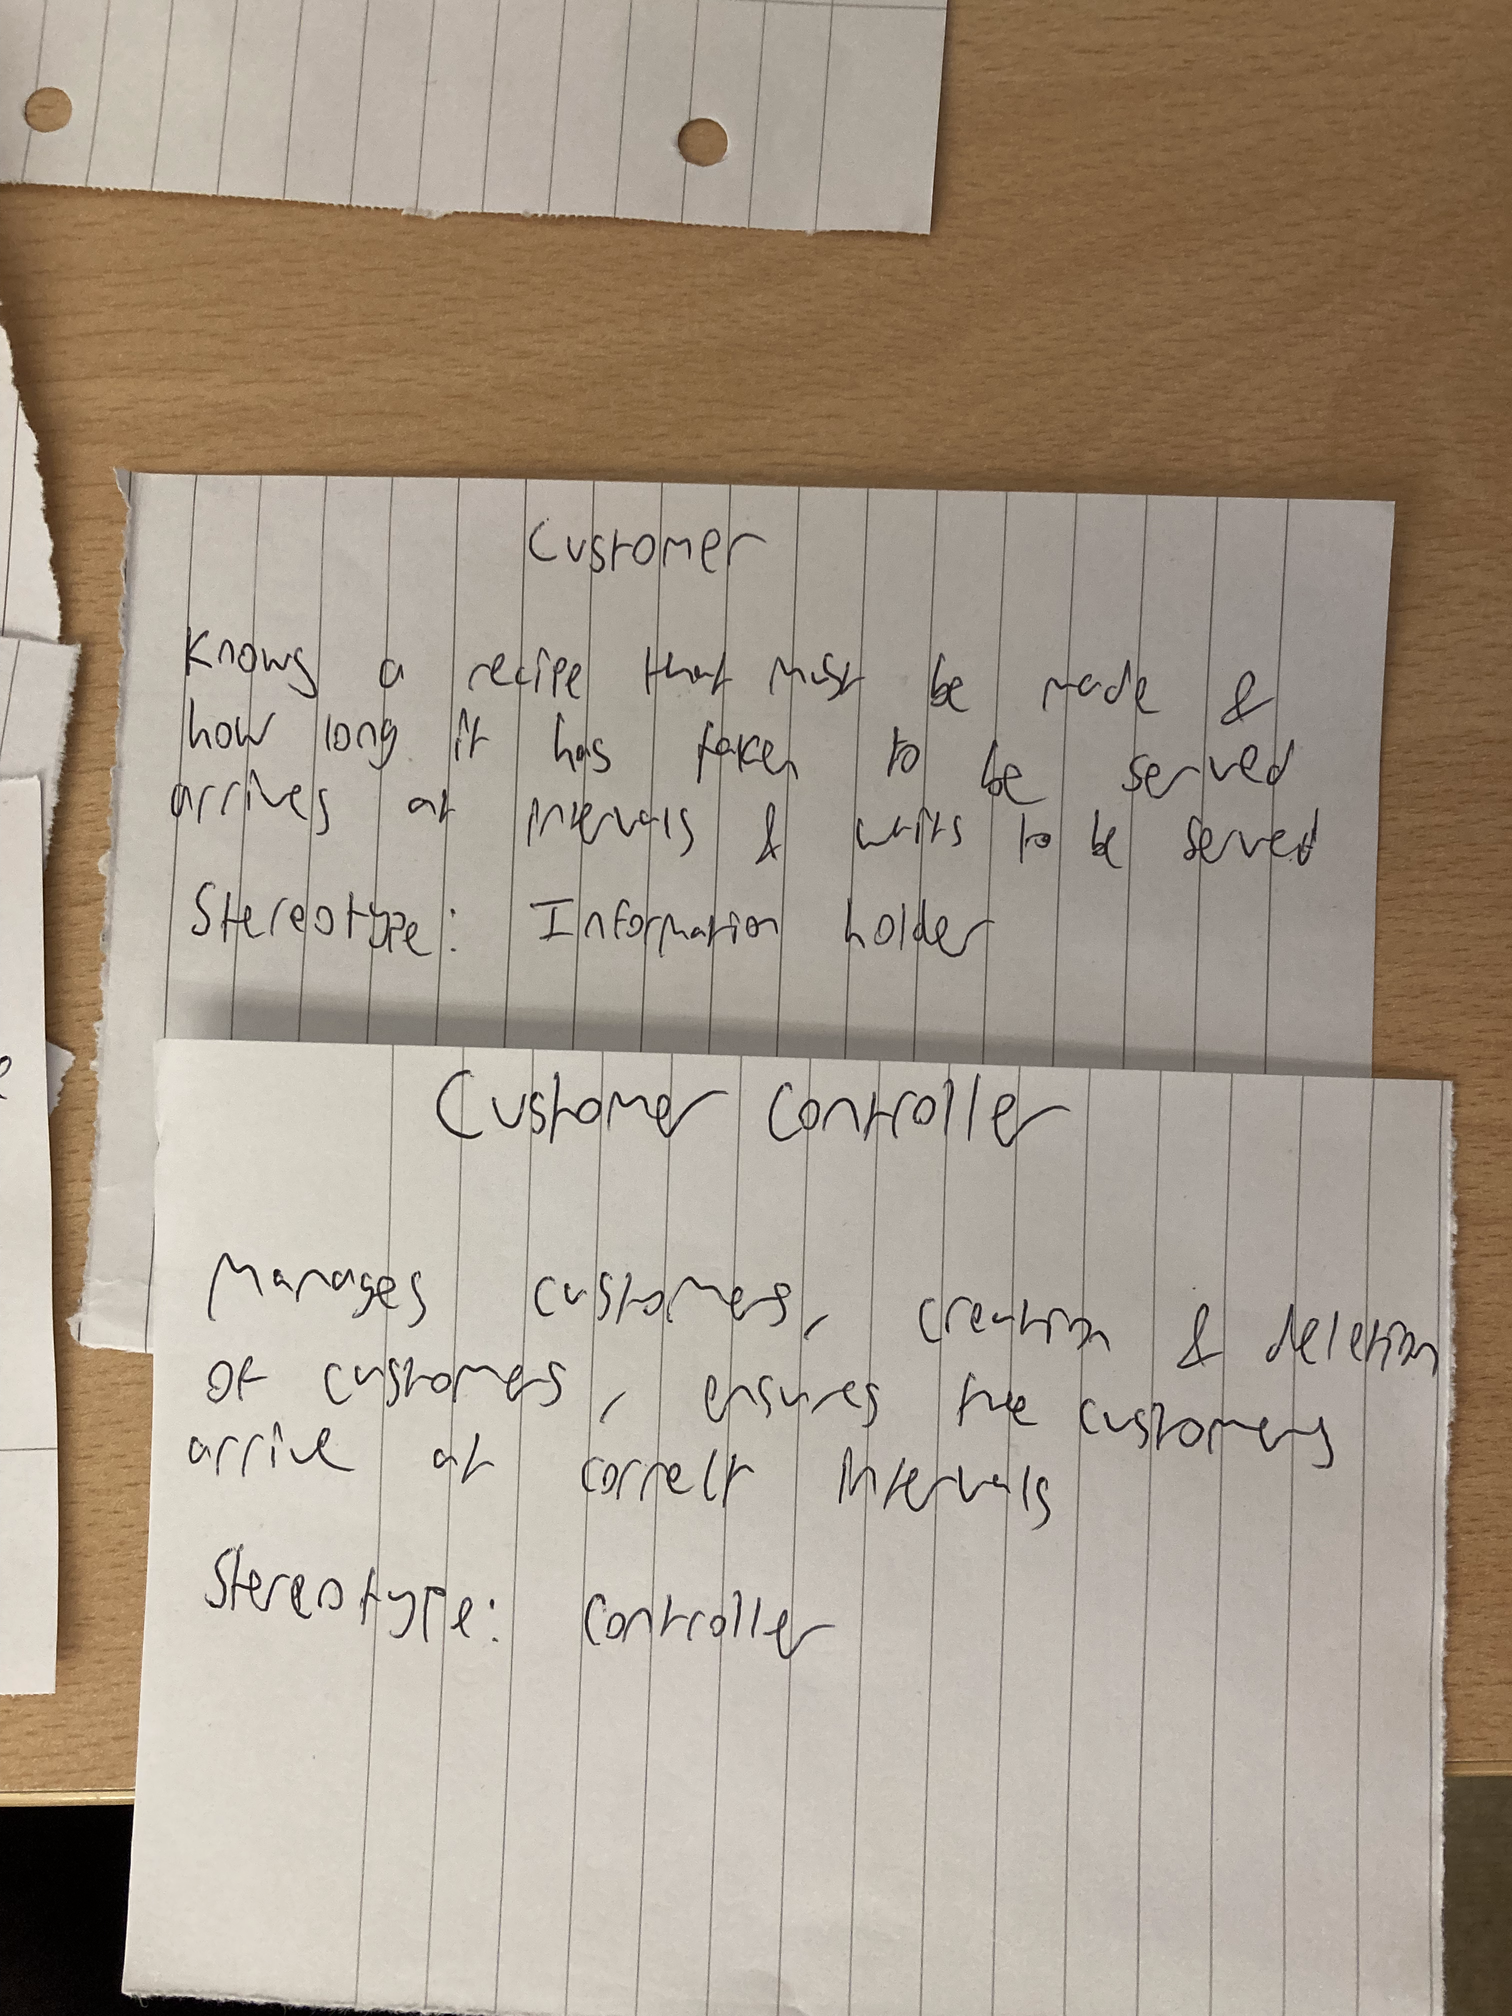 Customer
Knows a recipe that must be made &
how long it has taken to be served
arrives at intervals & waits to be served
Stereotype: Information holder
Customer Controller
Manages customers, creation & deletion
of customers, ensures the customers
arrive at correct intervals
Stereotype: Controller